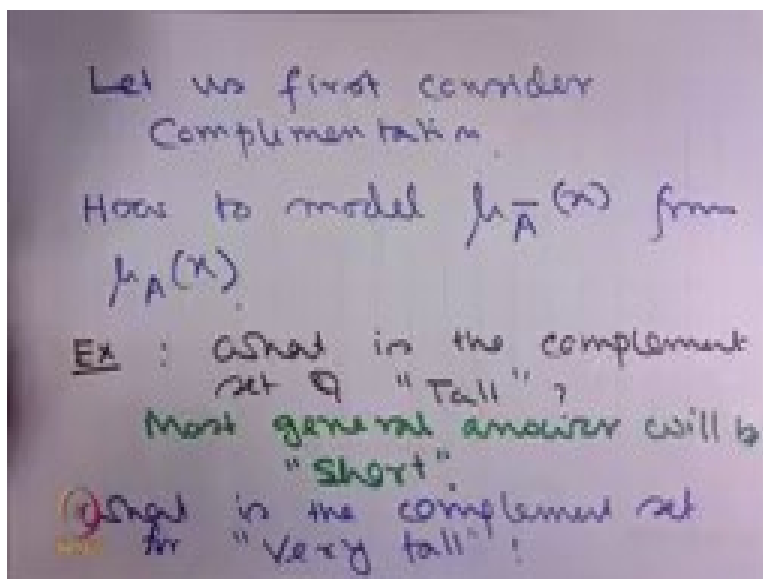 Let us first consider
Complementation.
How to model μ_Ā(x) from
μ_A(x).
Ex : What is the complement
set of "Tall"?
Most general answer will be
"Short".
What is the complement set
for "Very tall"?